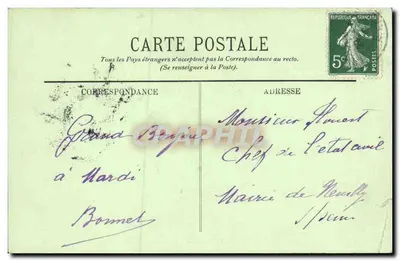 REPUBLIQUE FRANÇAISE
5c
POSTES
CARTE POSTALE
Tous les Pays étrangers n'acceptent pas la Correspondance au recto.
(Se renseigner à la Poste).
CORRESPONDANCE
ADRESSE
Grand
à Mardi
Bonnet
Monsieur
Chef de l'etat civil
Mairie de Neuilly
s/seine